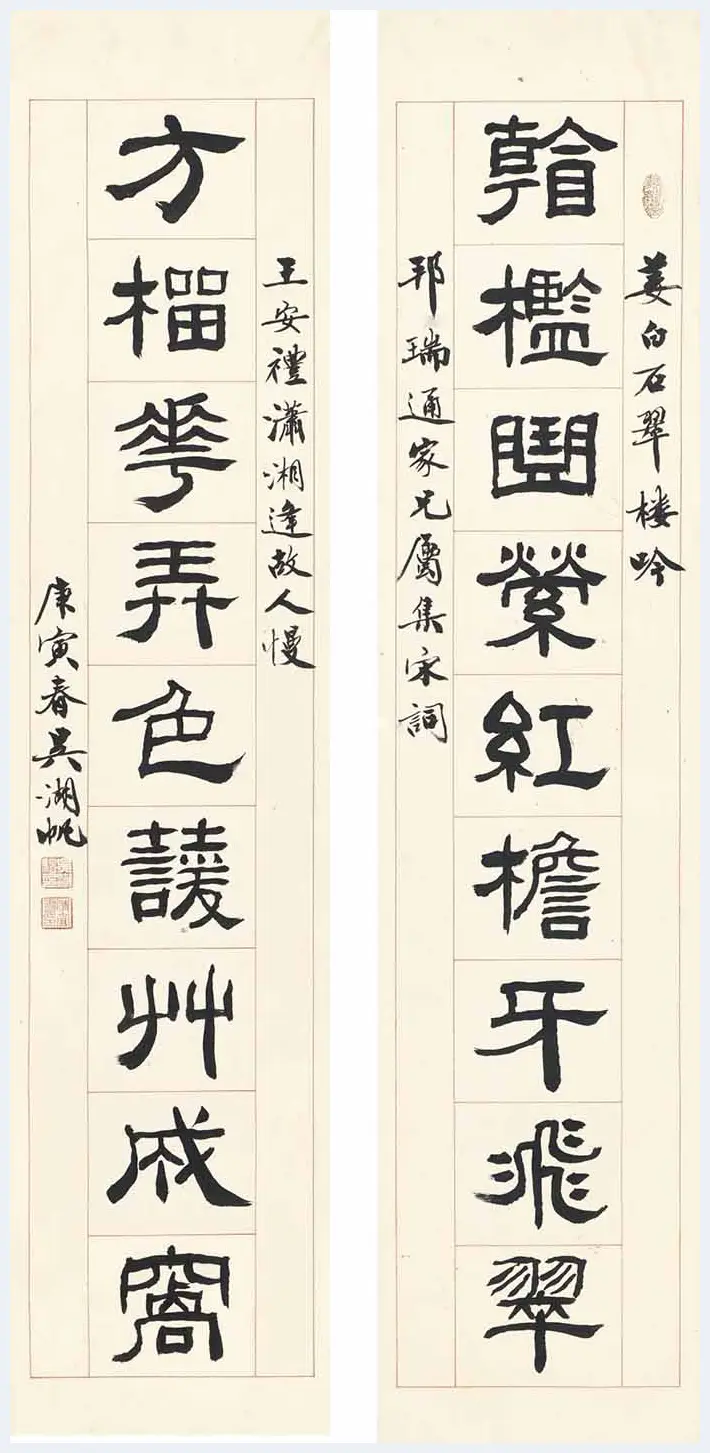 姜白石翠楼吟
看檻曲縈紅檐牙飛翠
邦瑞通家兄屬集宋詞
王安禮瀟湘逢故人慢
方榴華弄色蕿艸成窩
庚寅春吳湖帆